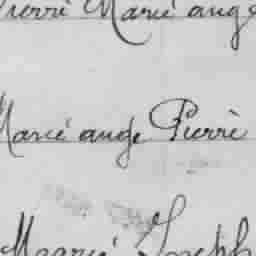 Pierrè Marié ange
Marié ange Pierrè
Maarié Joseph